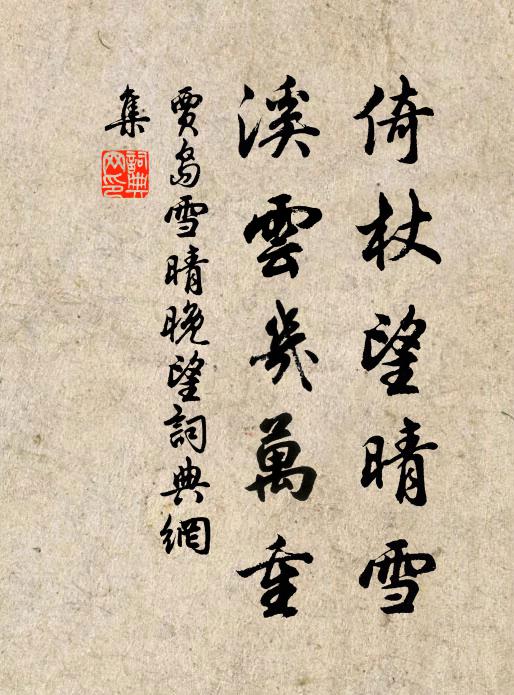 倚杖望晴雪
溪雲幾萬重
賈島雪晴晚望詞典網
集
詞典
网印